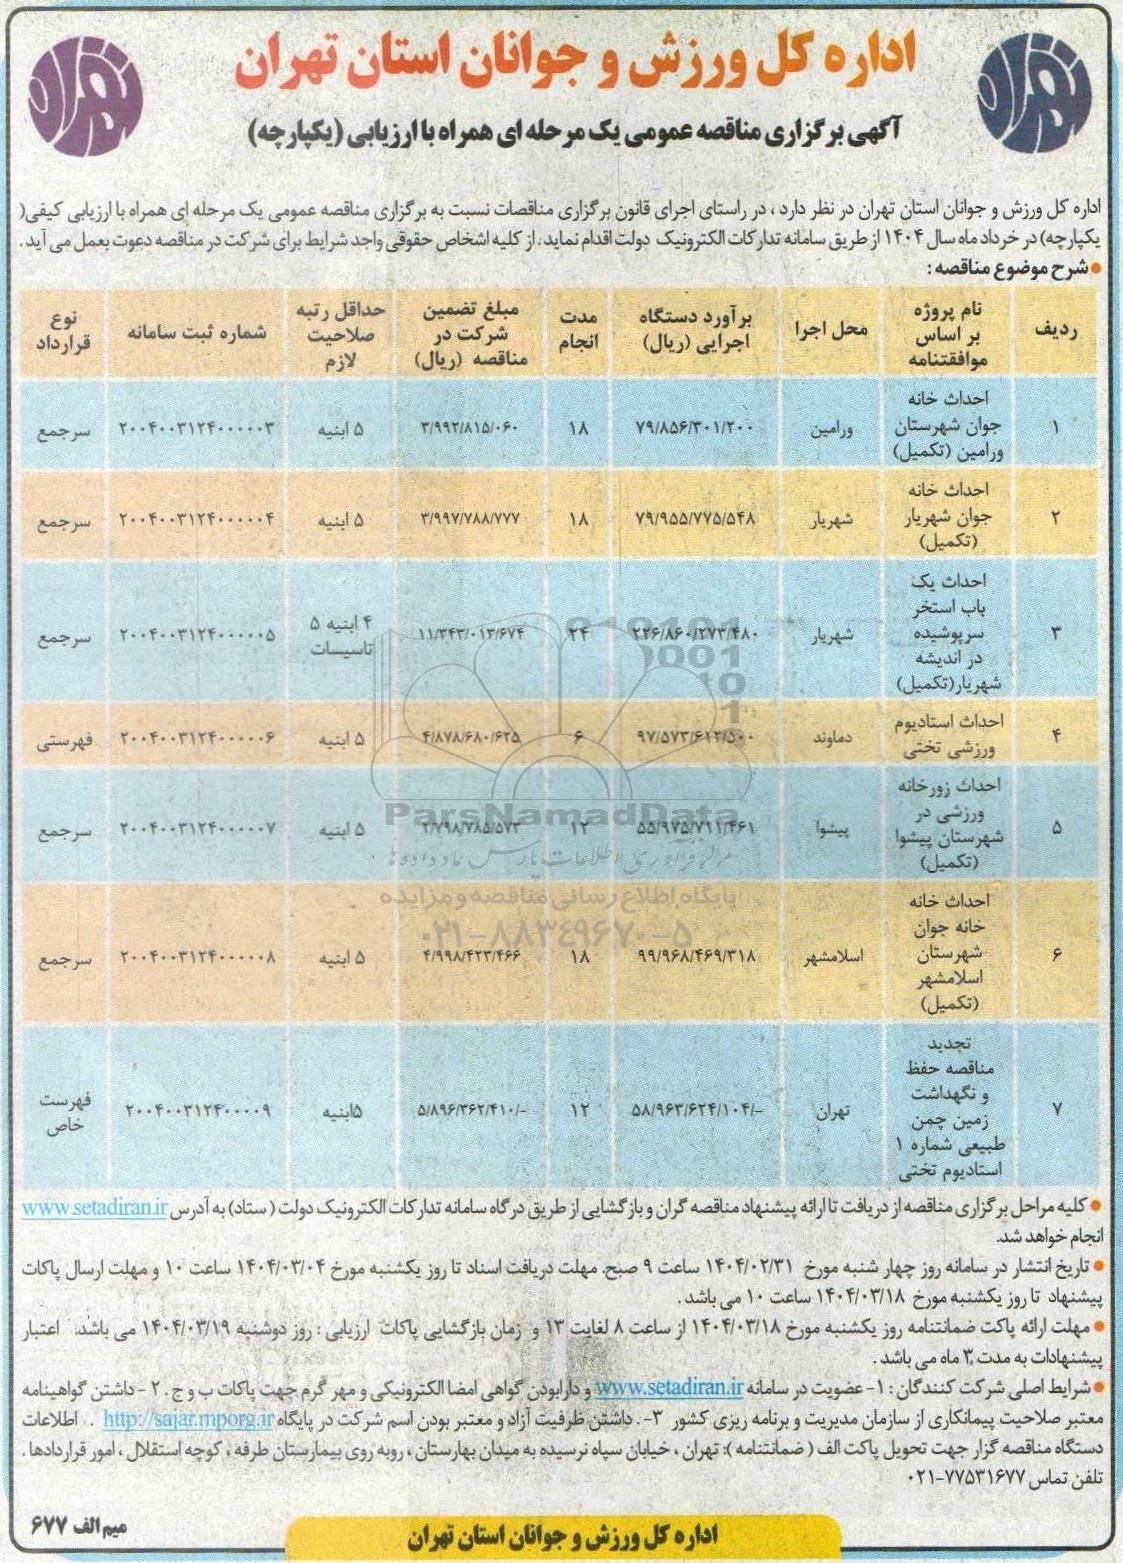 اداره کل ورزش و جوانان استان تهران
آگهی برگزاری مناقصه عمومی یک مرحله ای همراه با ارزیابی (یکپارچه)
اداره کل ورزش و جوانان استان تهران در نظر دارد ، در راستای اجرای قانون برگزاری مناقصات نسبت به برگزاری مناقصه عمومی یک مرحله ای همراه با ارزیابی کیفی(
یکپارچه) در خرداد ماه سال ۱۴۰۴ از طریق سامانه تدارکات الکترونیک دولت اقدام نماید. از کلیه اشخاص حقوقی واجد شرایط برای شرکت در مناقصه دعوت بعمل می آید .
● شرح موضوع مناقصه :
ردیف	نام پروژه بر اساس موافقتنامه	محل اجرا	برآورد دستگاه اجرایی (ریال)	مدت انجام	مبلغ تضمین شرکت در مناقصه (ریال)	حداقل رتبه صلاحیت لازم	شماره ثبت سامانه	نوع قرارداد
۱	احداث خانه جوان شهرستان ورامین (تکمیل)	ورامین	۷۹/۸۵۶/۳۰۱/۲۰۰	۱۸	۳/۹۹۲/۸۱۵/۰۶۰	۵ ابنیه	۲۰۰۴۰۰۳۱۲۴۰۰۰۰۰۳	سرجمع
۲	احداث خانه جوان شهریار (تکمیل)	شهریار	۷۹/۹۵۵/۷۷۵/۵۴۸	۱۸	۳/۹۹۷/۷۸۸/۷۷۷	۵ ابنیه	۲۰۰۴۰۰۳۱۲۴۰۰۰۰۰۴	سرجمع
۳	احداث یک باب استخر سرپوشیده در اندیشه شهریار(تکمیل)	شهریار	۲۲۶/۸۶۰/۲۷۳/۴۸۰	۲۴	۱۱/۳۴۳/۰۱۳/۶۷۴	۴ ابنیه ۵ تاسیسات	۲۰۰۴۰۰۳۱۲۴۰۰۰۰۰۵	سرجمع
۴	احداث استادیوم ورزشی تختی	دماوند	۹۷/۵۷۳/۶۱۲/۵۰۰	۶	۴/۸۷۸/۶۸۰/۶۲۵	۵ ابنیه	۲۰۰۴۰۰۳۱۲۴۰۰۰۰۰۶	فهرستی
۵	احداث زورخانه ورزشی در شهرستان پیشوا (تکمیل)	پیشوا	۵۵/۹۷۵/۷۱۱/۴۶۱	۱۲	۲/۷۹۸/۷۸۵/۵۷۳	۵ ابنیه	۲۰۰۴۰۰۳۱۲۴۰۰۰۰۰۷	سرجمع
۶	احداث خانه خانه جوان شهرستان اسلامشهر (تکمیل)	اسلامشهر	۹۹/۹۶۸/۴۶۹/۳۱۸	۱۸	۴/۹۹۸/۴۲۳/۴۶۶	۵ ابنیه	۲۰۰۴۰۰۳۱۲۴۰۰۰۰۰۸	سرجمع
۷	تجدید مناقصه حفظ و نگهداشت زمین چمن طبیعی شماره ۱ استادیوم تختی	تهران	۵۸/۹۶۳/۶۲۴/۱۰۴/-	۱۲	۵/۸۹۶/۳۶۲/۴۱۰/-	۵ابنیه	۲۰۰۴۰۰۳۱۲۴۰۰۰۰۹	فهرست خاص
ParsNamadData
مرکز فرآوری اطلاعات پارس نماد داده ها
پایگاه اطلاع رسانی مناقصه و مزایده
۰۲۱-۸۸۳۴۹۶۷۰-۵
● کلیه مراحل برگزاری مناقصه از دریافت تا ارائه پیشنهاد مناقصه گران و بازگشایی از طریق درگاه سامانه تدارکات الکترونیک دولت ( ستاد) به آدرس www.setadiran.ir
انجام خواهد شد.
● تاریخ انتشار در سامانه روز چهار شنبه مورخ ۱۴۰۴/۰۲/۳۱ ساعت ۹ صبح. مهلت دریافت اسناد تا روز یکشنبه مورخ ۱۴۰۴/۰۳/۰۴ ساعت ۱۰ و مهلت ارسال پاکات
پیشنهاد تا روز یکشنبه مورخ ۱۴۰۴/۰۳/۱۸ ساعت ۱۰ می باشد .
● مهلت ارائه پاکت ضمانتنامه روز یکشنبه مورخ ۱۴۰۴/۰۳/۱۸ از ساعت ۸ لغایت ۱۳ و زمان بازگشایی پاکات ارزیابی : روز دوشنبه ۱۴۰۴/۰۳/۱۹ می باشد. اعتبار
پیشنهادات به مدت ۳ ماه می باشد .
● شرایط اصلی شرکت کنندگان : ۱- عضویت در سامانه www.setadiran.ir و دارابودن گواهی امضا الکترونیکی و مهر گرم جهت پاکات ب و ج . ۲ - داشتن گواهینامه
معتبر صلاحیت پیمانکاری از سازمان مدیریت و برنامه ریزی کشور ۳- . داشتن ظرفیت آزاد و معتبر بودن اسم شرکت در پایگاه http://sajar.mporg.ir . اطلاعات
دستگاه مناقصه گزار جهت تحویل پاکت الف ( ضمانتنامه ): تهران ، خیابان سپاه نرسیده به میدان بهارستان ، روبه روی بیمارستان طرفه ، کوچه استقلال ، امور قراردادها .
تلفن تماس ۷۷۵۳۱۶۷۷-۰۲۱
میم الف ۶۷۷
اداره کل ورزش و جوانان استان تهران